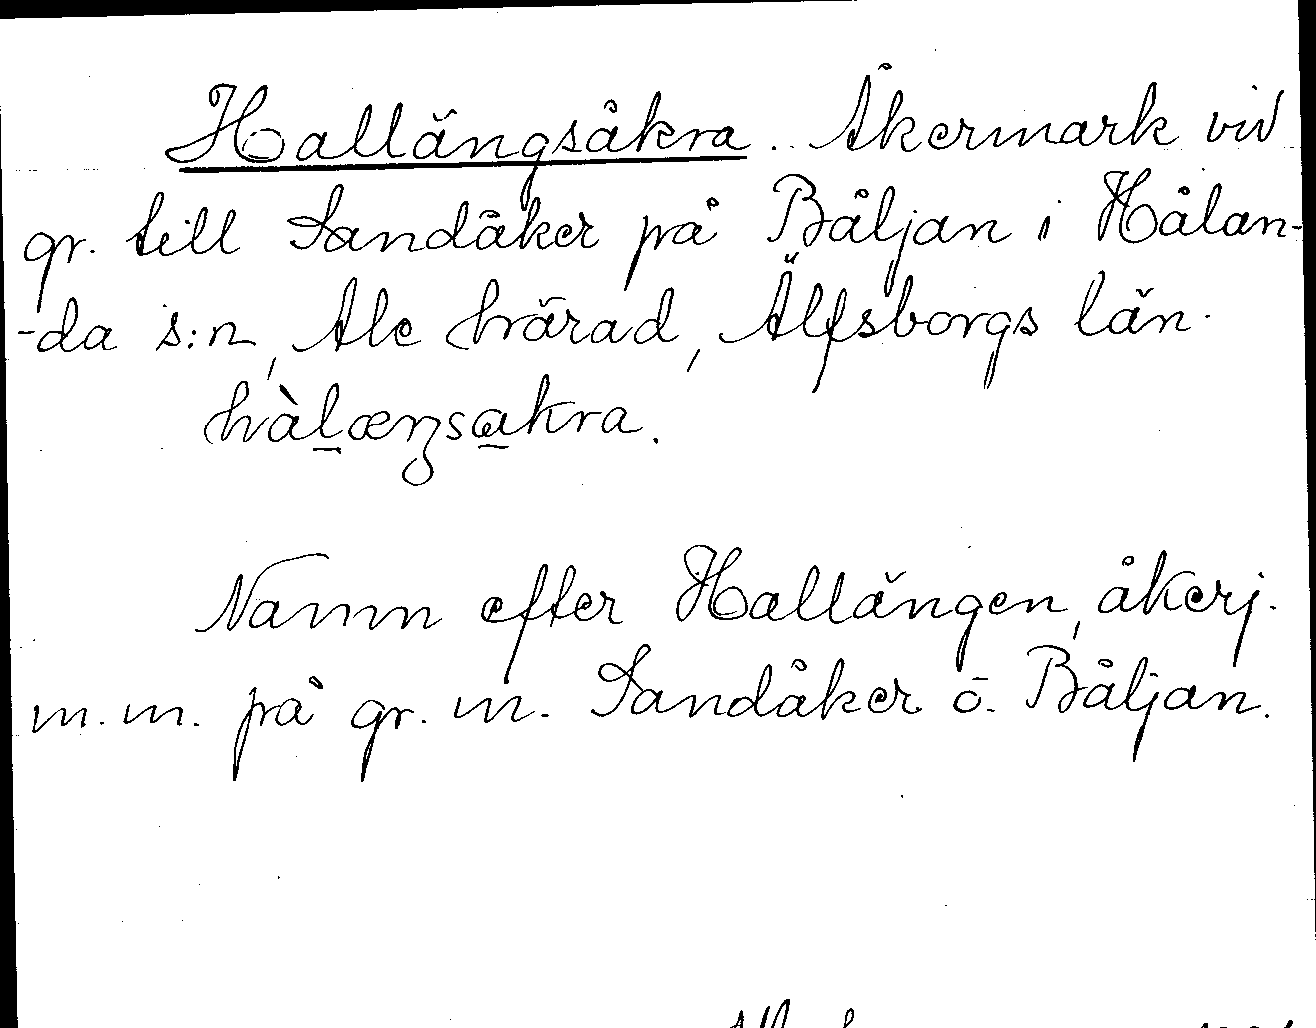 Hallängsåkra. Åkermark vid
gr. till Sandåker på Båljan i Hålan-
-da s:n, Ale härad, Älfsborgs län.
hàlæŋsakra.
Namn efter Hallängen, åkerj.
m.m. på gr. m. Sandåker o. Båljan.